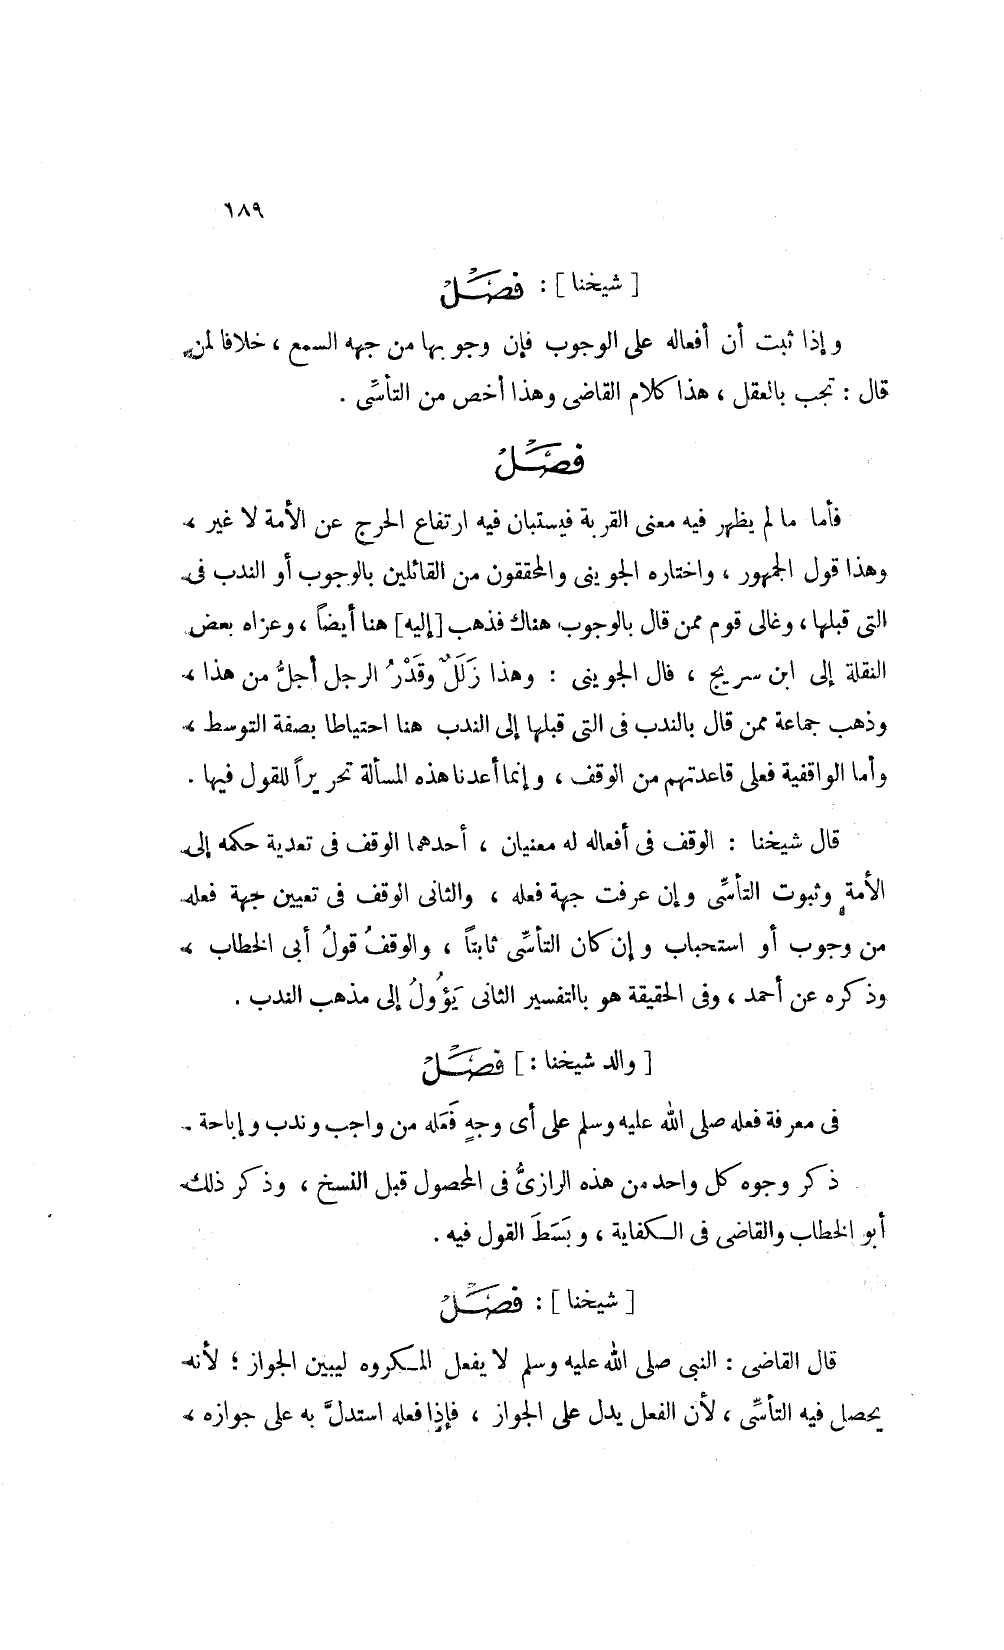 ١٨٩
[ شيخنا ] : فصَْلٌ
وإذا ثبت أن أفعاله على الوجوب فإن وجوبها من جهه السمع ، خلافا لمن
قال : تجب بالعقل ، هذا كلام القاضى وهذا أخص من التأسِّى .
فصَْلٌ
فأما ما لم يظهر فيه معنى القربة فيستبان فيه ارتفاع الحرج عن الأمة لا غير ،
وهذا قول الجمهور ، واختاره الجوينى والمحققون من القائلين بالوجوب أو الندب فى
التى قبلها ، وغالى قوم ممن قال بالوجوب هناك فذهب [إليه] هنا أيضاً ، وعزاه بعض
النقلة إلى ابن سريج ، فال الجوينى : وهذا زَلَلٌ وقَدْرُ الرجل أجلُّ من هذا ،
وذهب جماعة ممن قال بالندب فى التى قبلها إلى الندب هنا احتياطا بصفة التوسط ،
وأما الواقفية فعلى قاعدتهم من الوقف ، وإنما أعدنا هذه المسألة تحريراً للقول فيها .
قال شيخنا : الوقف فى أفعاله له معنيان ، أحدهما الوقف فى تعدية حكمه إلى
الأمة وثبوت التأسِّى وإن عرفت جهة فعله ، والثانى الوقف فى تعيين جهة فعله
من وجوب أو استحباب وإن كان التأسِّى ثابتاً ، والوقفُ قولُ أبى الخطاب ،
وذكره عن أحمد ، وفى الحقيقة هو بالتفسير الثانى يَؤُولُ إلى مذهب الندب .
[ والد شيخنا : ] فصَْلٌ
فى معرفة فعله صلى الله عليه وسلم على أى وجهٍ فَعَله من واجب وندب وإباحة .
ذكر وجوه كل واحد من هذه الرازىُّ فى المحصول قبل النسخ ، وذكر ذلك
أبو الخطاب والقاضى فى الكفاية ، وبَسَطَ القول فيه .
[ شيخنا ] : فصَْلٌ
قال القاضى : النبى صلى الله عليه وسلم لا يفعل المكروه ليبين الجواز ؛ لأنه
يحصل فيه التأسِّى ، لأن الفعل يدل على الجواز ، فإذا فعله استدلَّ به على جوازه ،